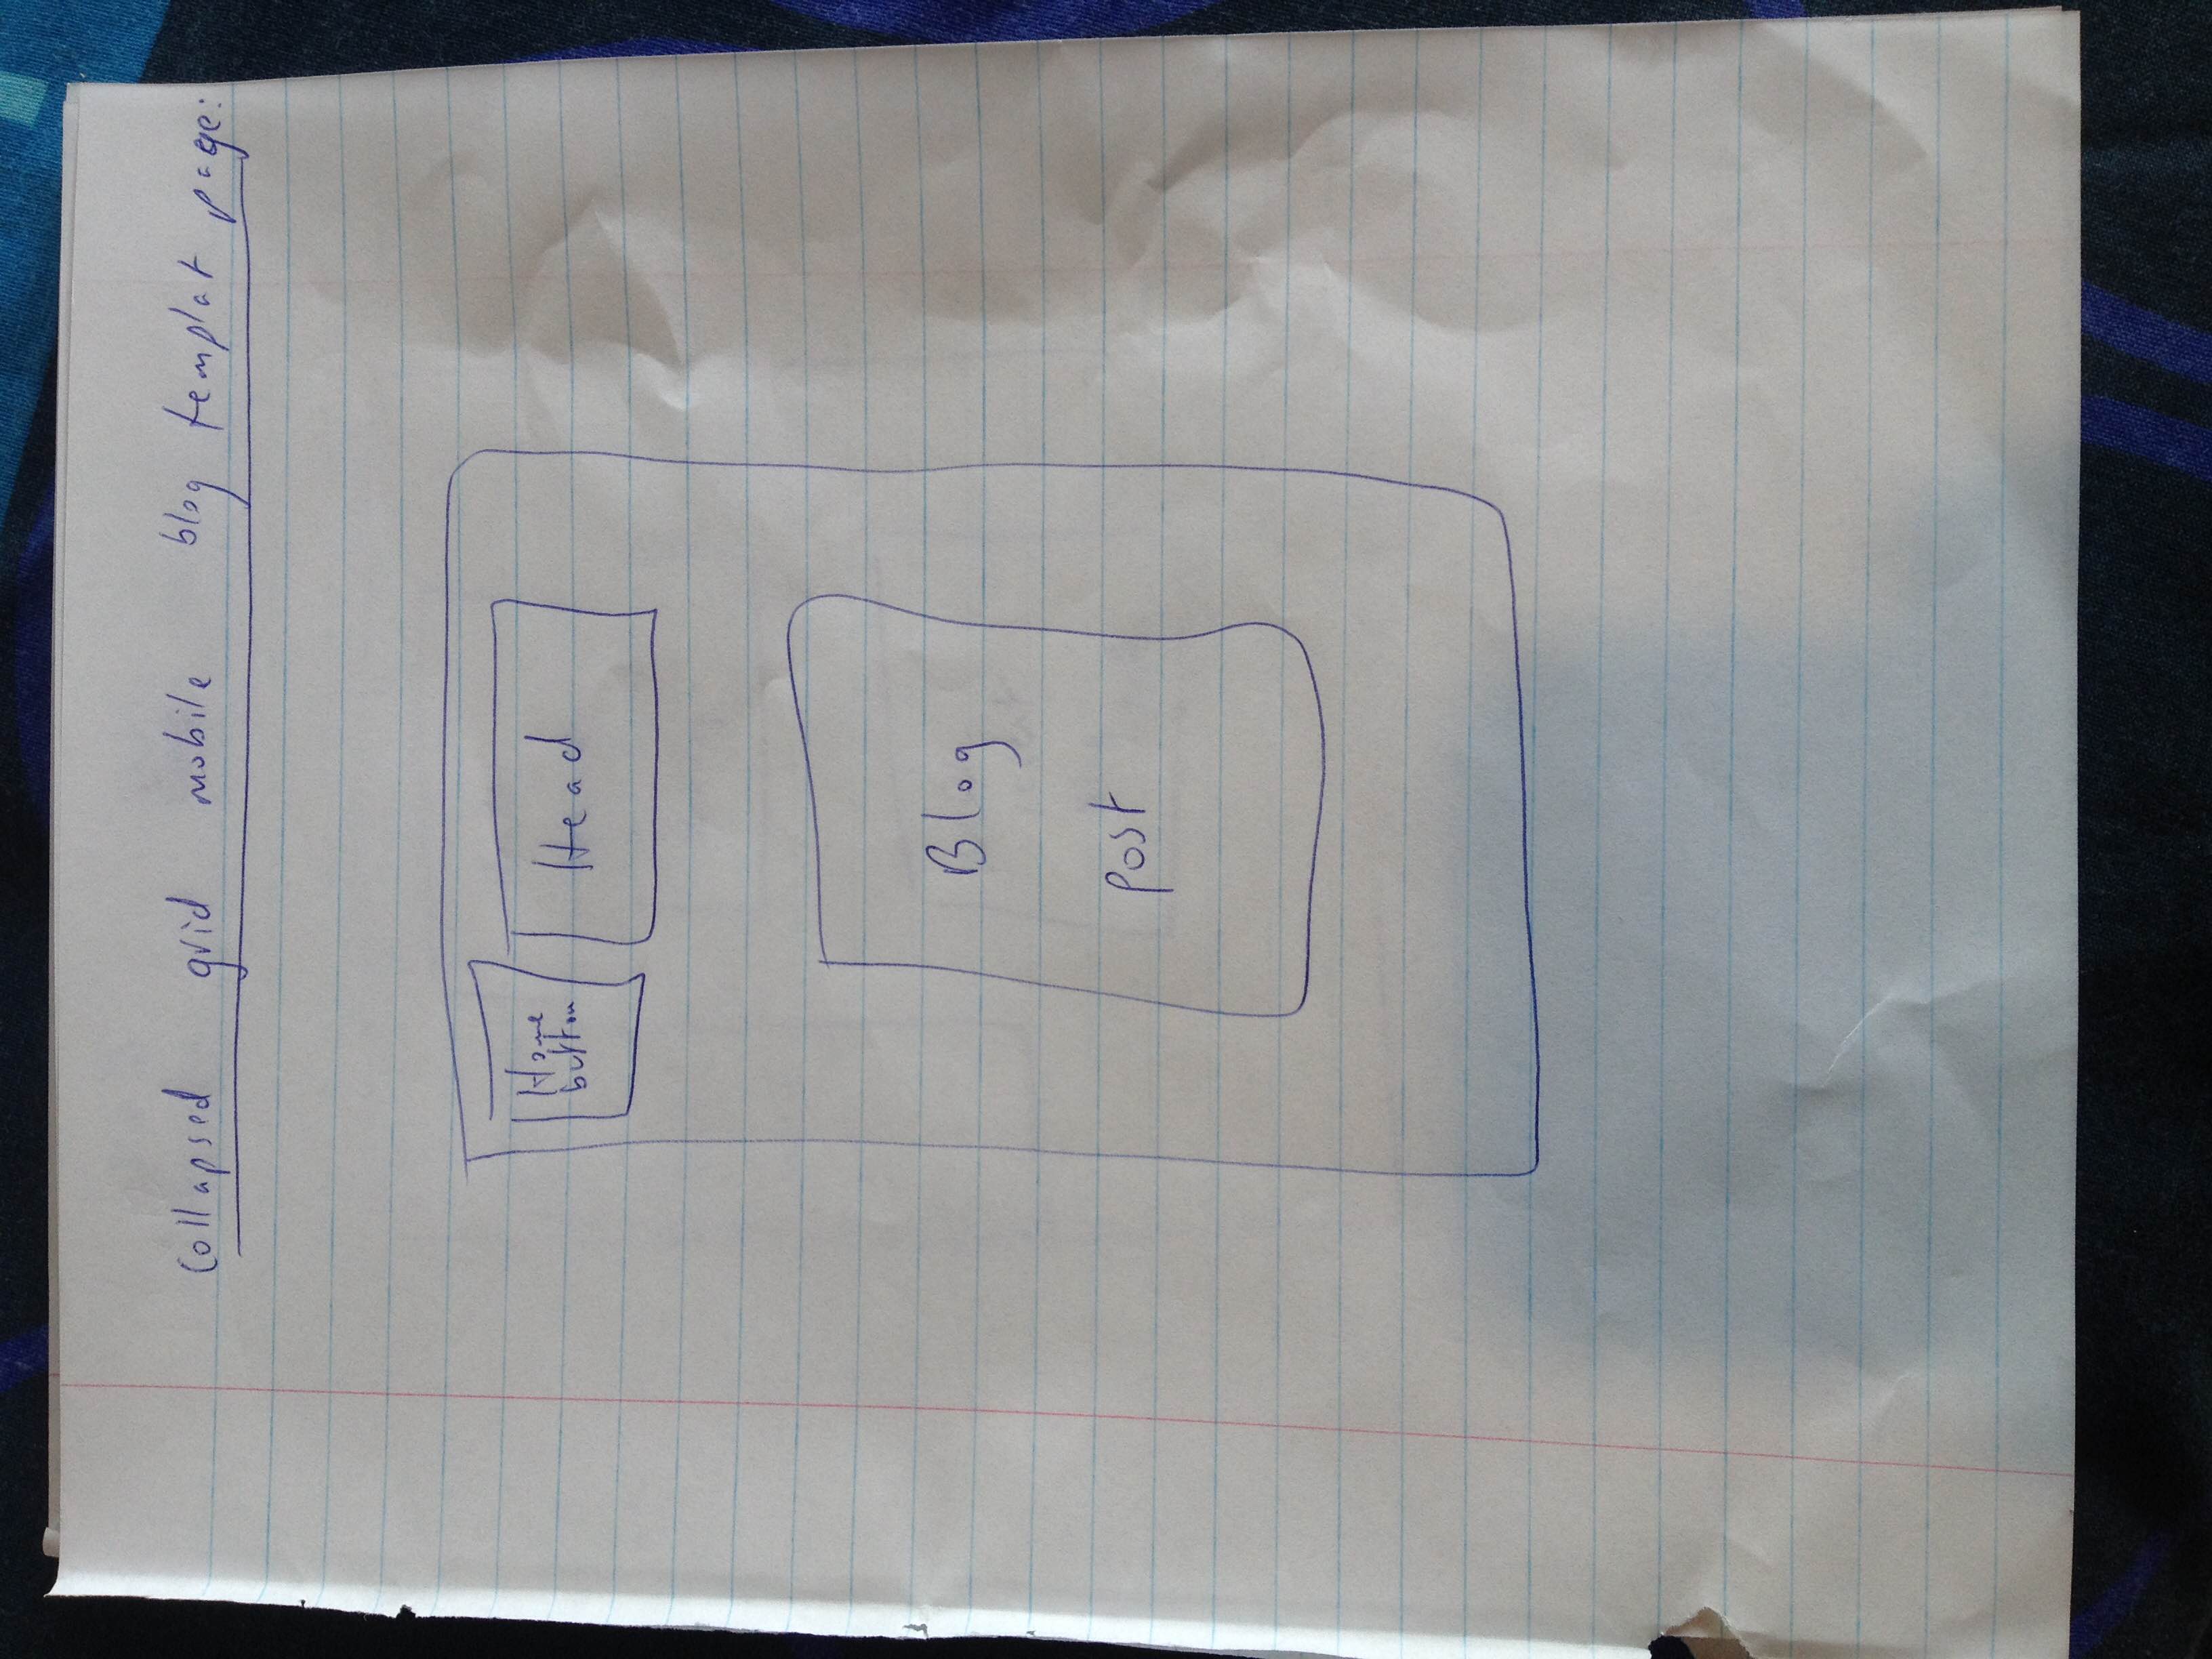 collapsed grid mobile blog templat page:
Home
button
Head
Blog
post